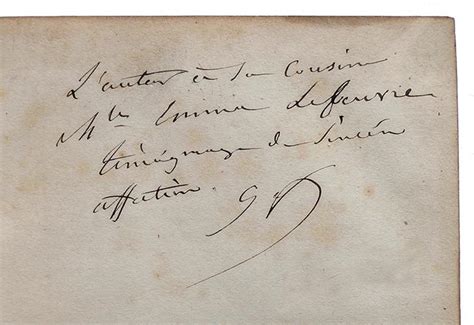 L'auteur à sa cousine
Mlle Emma Lefeuvre
témoignage de sincère
affection.